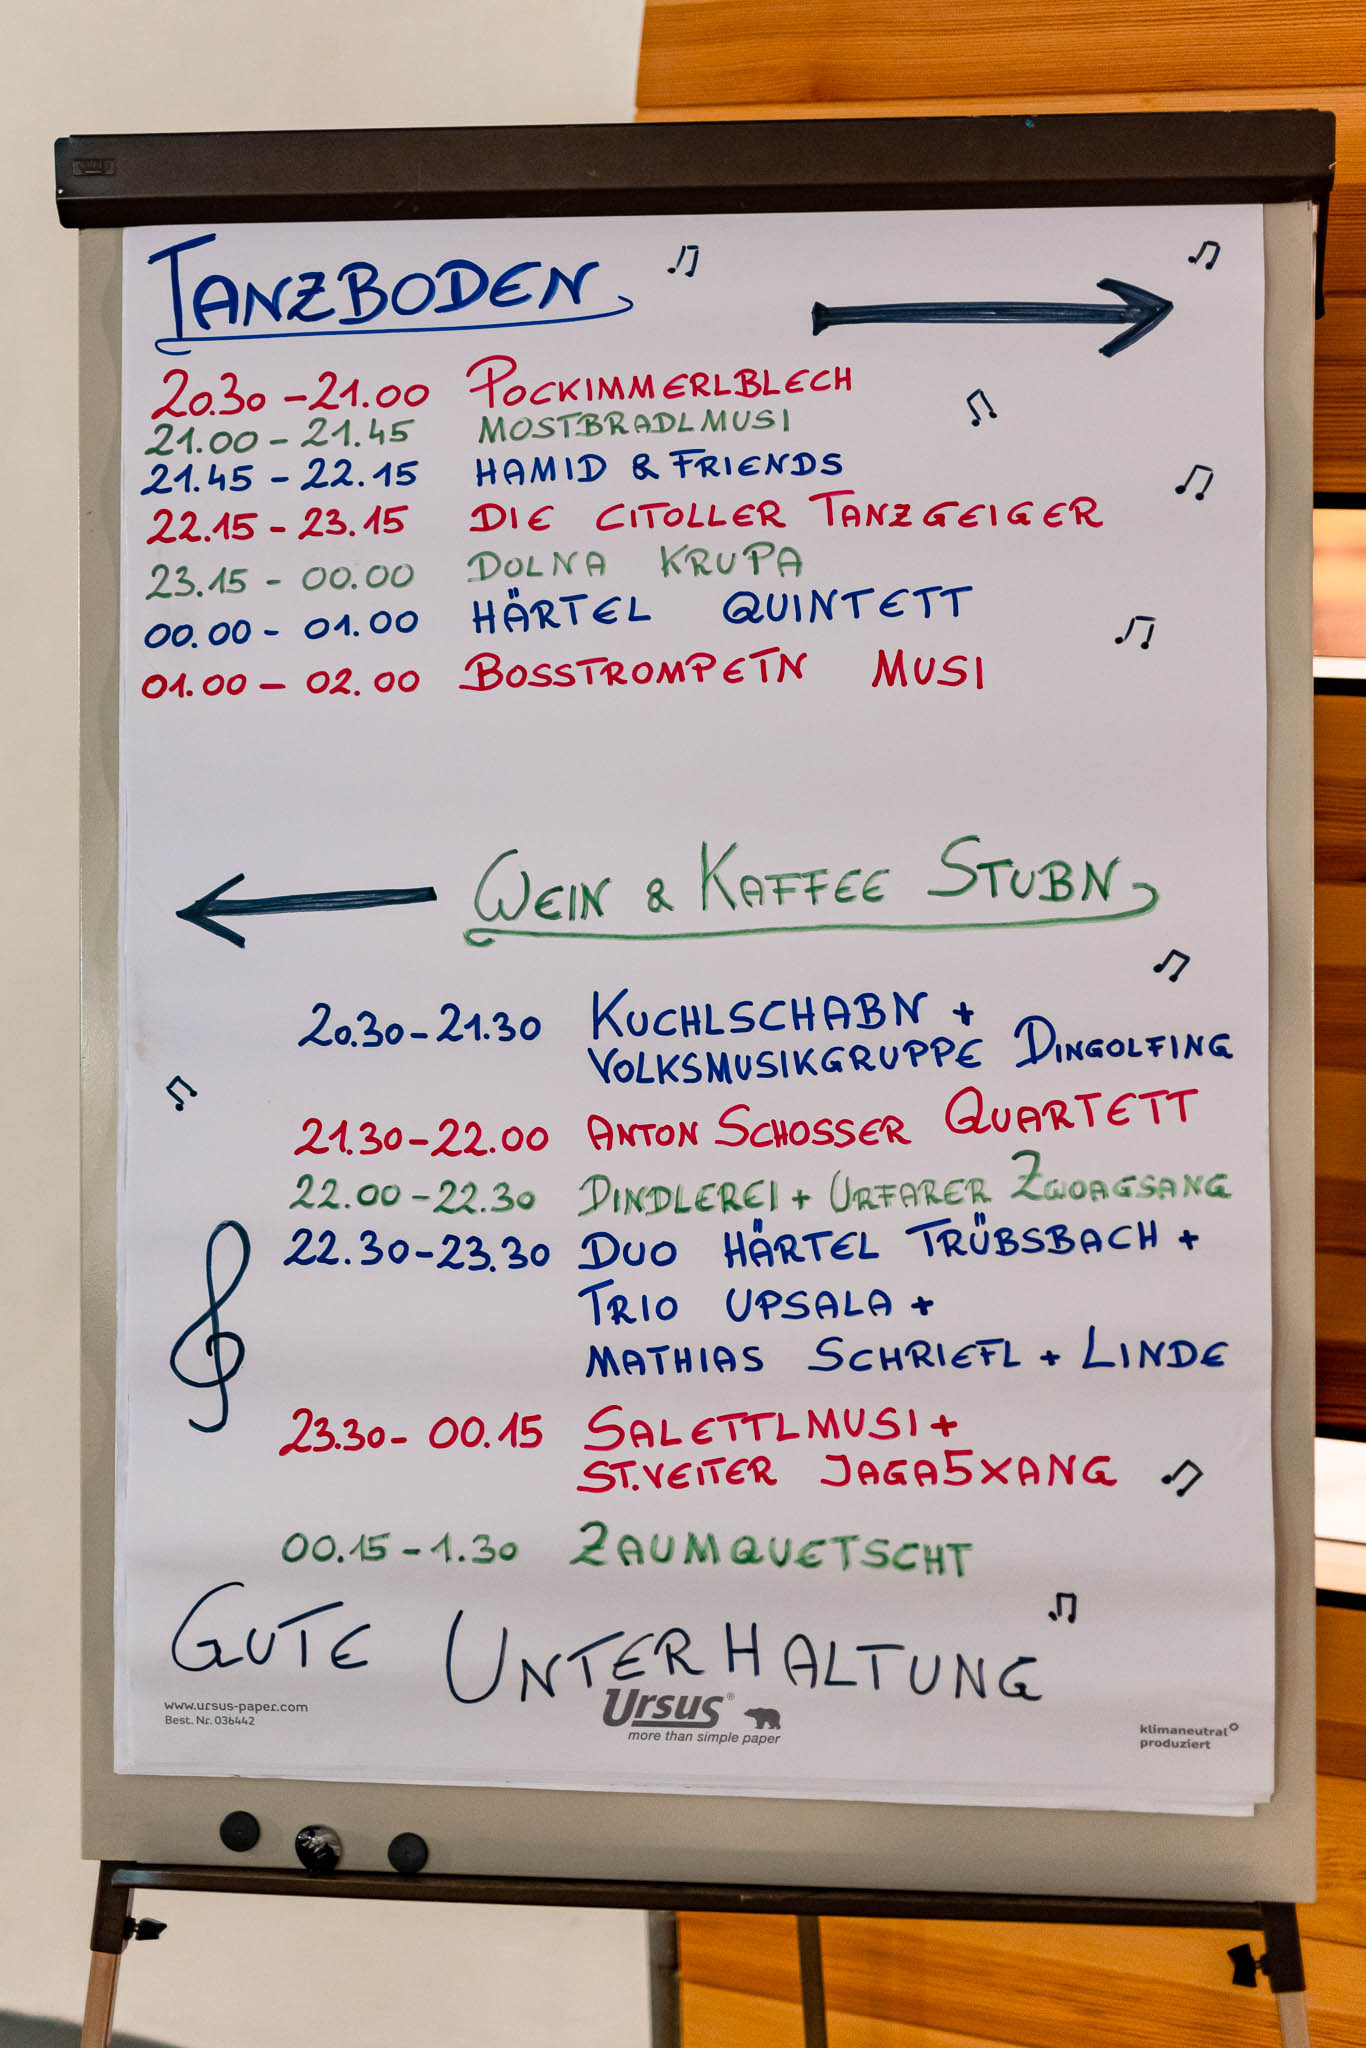 TANZBODEN
20.30 - 21.00 POCKIMMERLBLECH
21.00 - 21.45 MOSTBRADLMUSI
21.45 - 22.15 HAMID & FRIENDS
22.15 - 23.15 DIE CITOLLER TANZGEIGER
23.15 - 00.00 DOLNA KRUPA
00.00 - 01.00 HÄRTEL QUINTETT
01.00 - 02.00 BOSSTROMPETN MUSI
WEIN & KAFFEE STUBN
20.30 - 21.30 KUCHLSCHABN +
VOLKSMUSIKGRUPPE DINGOLFING
21.30 - 22.00 ANTON SCHOSSER QUARTETT
22.00 - 22.30 DINDLEREI + URFARER ZWOAGSANG
22.30 - 23.30 DUO HÄRTEL TRÜBSBACH +
TRIO UPSALA +
MATHIAS SCHRIEFL + LINDE
23.30 - 00.15 SALETTLMUSI +
ST.VEITER JAGA5XANG
00.15 - 1.30 ZAUMQUETSCHT
GUTE UNTERHALTUNG
www.ursus-paper.com
Best. Nr. 036442
Ursus®
more than simple paper
klimaneutral
produziert